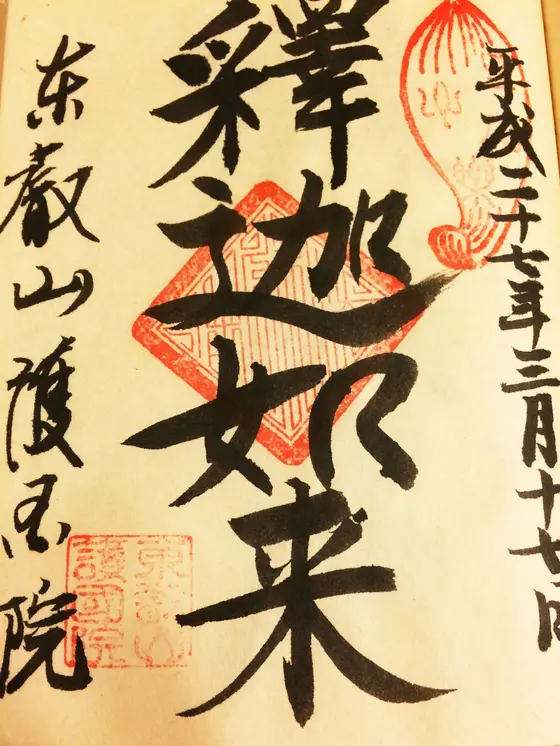 平成二十七年三月十七日
釋迦如来
東叡山護国院
東叡山
護國院